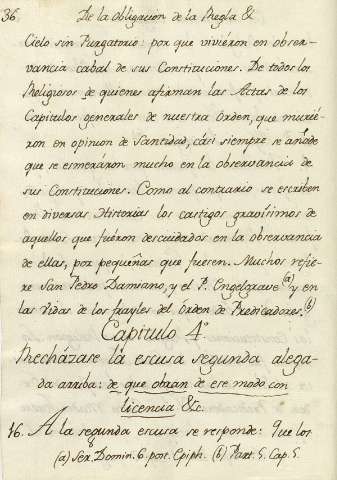 36. De la Obligación de la Regla &
Cielo sin Purgatorio: por que viviéron en obser-
vancia cabal de sus Constituciones. De todos los
Religiosos de quienes afirman las Actas de los
Capitulos generales de nuestra Orden, que murié-
ron en opinion de Santidad, cási siempre se añade
que se esmeráron mucho en la observancia de
sus Constituciones. Como al contrario se escriben
en diversas Historias los castigos gravisimos de
aquellos que fuéron descuidados en la observancia
de ellas, por pequeñas que fuesen. Muchos refie-
re San Pedro Damiano, y el P. Engelgrave (a) y en
las Vidas de los frayles del Orden de Predicadores. (b)
Capitulo 4º
Recházase la escusa segunda alega-
da arriba: de que obran de ese modo con
licencia &c.
16. A la segunda escusa se responde: Que los
(a) Sex. Domin. 6. post. Epiph. (b) Part. 5. Cap. 5.